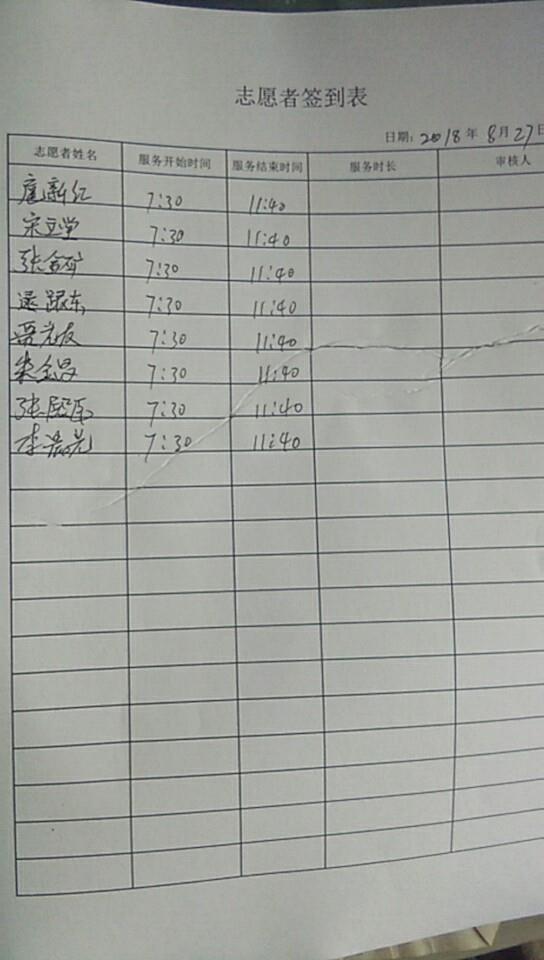 志愿者签到表
日期：2018年8月27日
志愿者姓名 服务开始时间 服务结束时间 服务时长 审核人
扈新红 7:30 11:40
宋立堂 7:30 11:40
张金矿 7:30 11:40
逯跟东 7:30 11:40
7:30 11:40
朱全昌 7:30 11:40
张殿臣 7:30 11:40
李 7:30 11:40